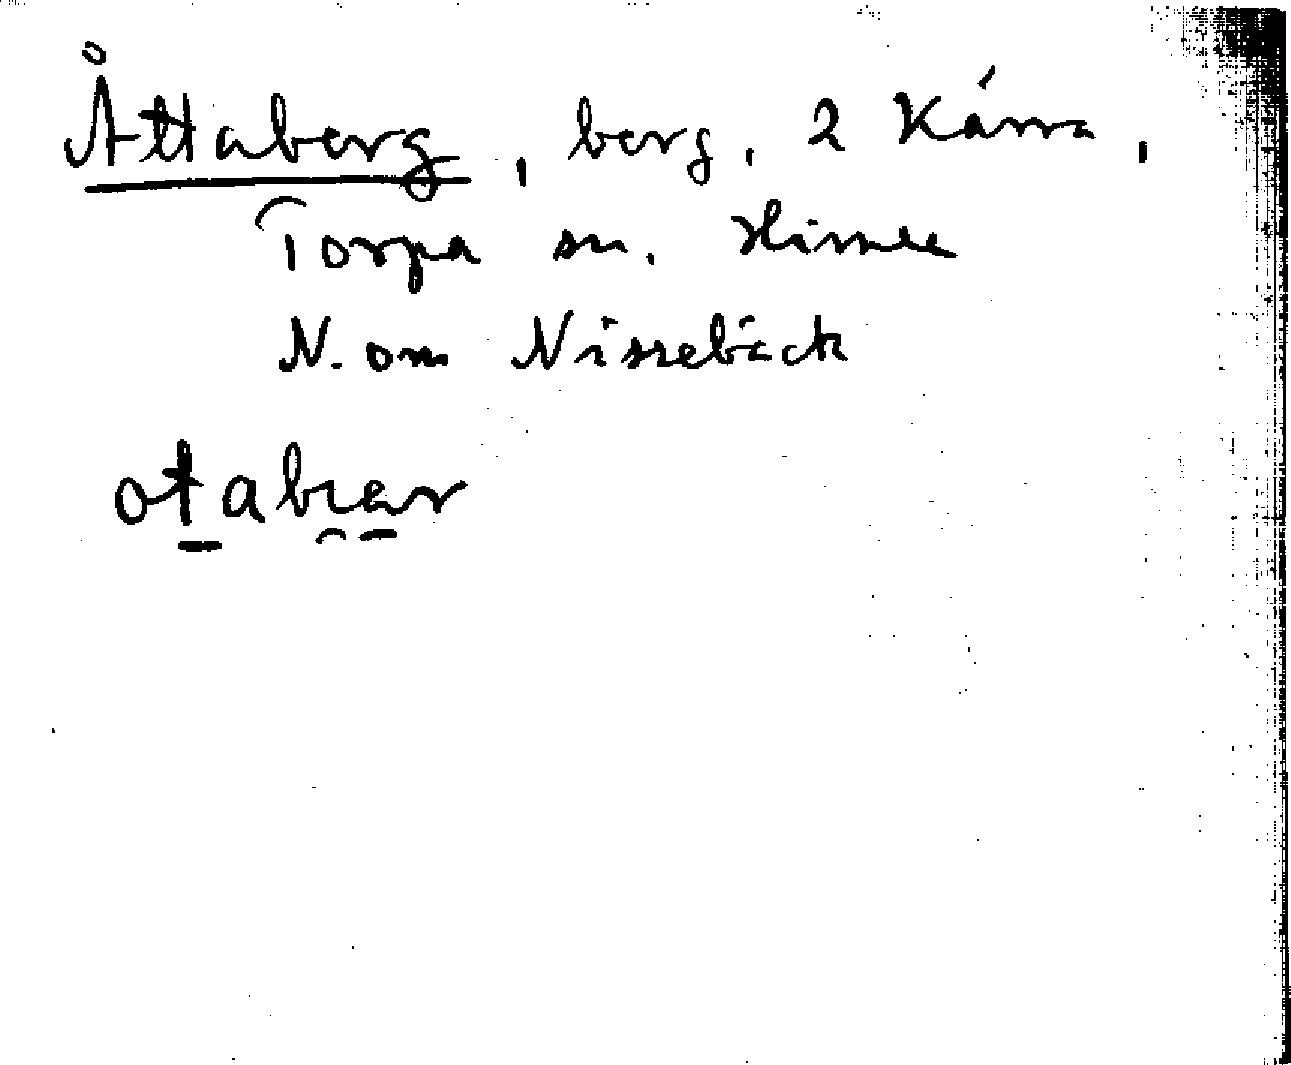 Åttaberg, berg, 2 Kärra,
Torpa sn. Himle
N. om Nissebäck